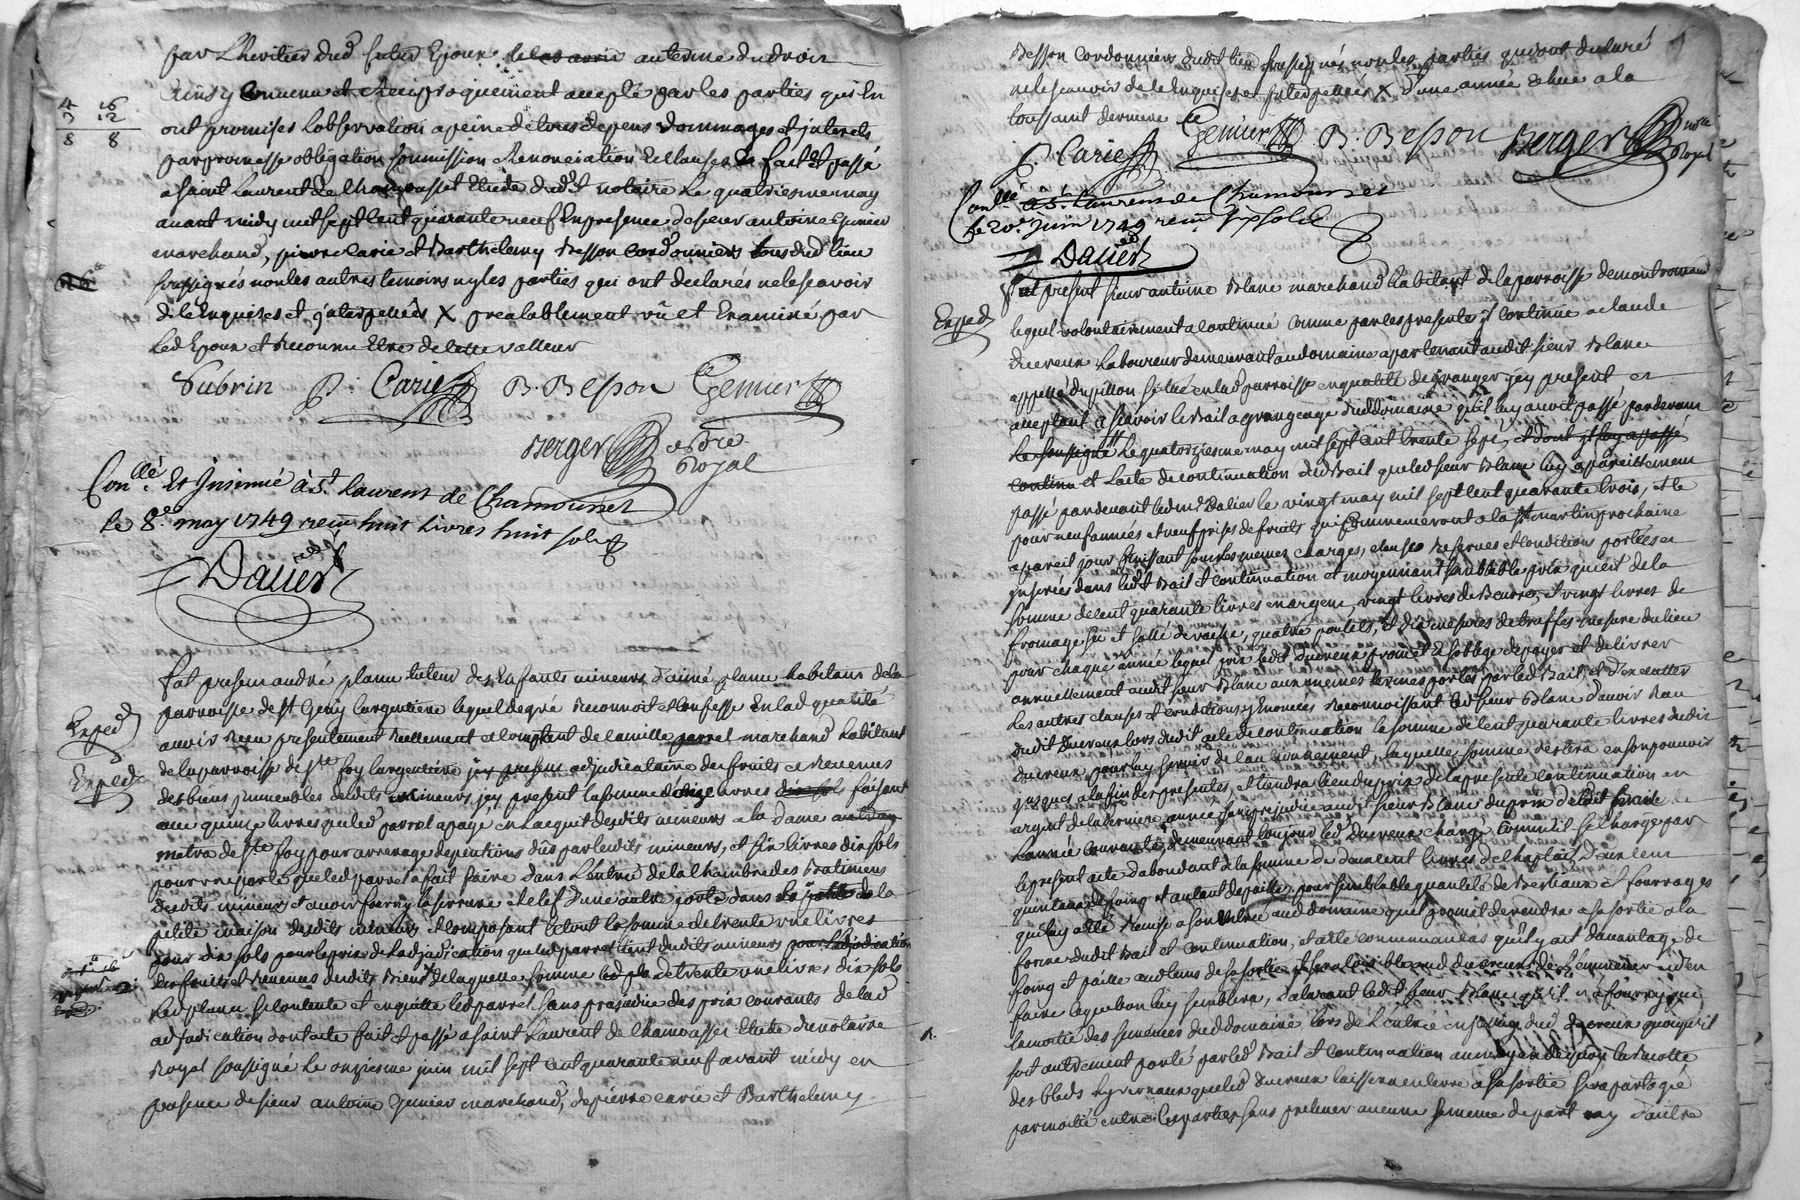 par L'heritier dud futur Epoux le cas avin au terme du droit
Ainsy convenu et Reciproquement accepté par les parties qui En
ont promises l'observation a peine de tous depens dommages et interets
par promesse obligation soumission Renonciation Et clauses fait Et passé
a saint Laurent de Chamousset Etude dudt notaire Le quatriesme may
avant midy mil sept cent quarante neuf En presence de sieur antoine Genier
marchand, pierre Carie et Barthelemy Besson cordonniers tous dud lieu
soussignés non les autres temoins ny les parties qui ont declarés ne le scavoir
de ce Enquises et interpellés X prealablement vû et Examiné par
led Epoux et Reconnu Etre de cette valleur
4 6
3 12
8 8
Subrin P. Carie B. Besson Genier
Berger nore
Royal
Conllé Et Insinué a St Laurent de Chamousset
le 8e may 1749 recu huit livres huit sols
Dalier
fut present andré planu tuteur des Enfants mineurs d'aimé planu habitant de la
parroisse de st Geny l'argentiere lequel de gré Reconnoit et Confesse En lad qualité
Exped
avoir Receu presentement Reellement et comptant de Camille parret marchand habitant
Exped
de la parroisse de ste foy l'argentiere jcy present adjudicataire des fruits et Revenus
des biens jmmeubles desdits mineurs jcy present la somme de livres dix sols faisant
avec quinze livres que led parret a payé en l'acquit desdits mineurs a la dame
metra de ste foy pour arrerage de pentions dûs par lesdits mineurs, et six livres dix sols
pour une porte que led parret a fait faire dans L'entrée de la Chambre des Batimens
desdits mineurs et avoir fourny la serrure et clef d'une autre porte dans la
petite maison desdits mineurs et composant le tout la somme de trente une livres
dix sols pour le prix de l'adjudication que led parret tient desdits mineurs pour l'adjudication
des fruits et Revenus desdits Biens de laquelle somme de trente une livres dix sols
led planu se contente et en quitte led parret sans prejudice des prix courants de lad
adjudication dont acte fait et passé a saint Laurent de Chamousset Etude du notaire
Royal soussigné Le onziesme juin mil sept cent quarante neuf avant midy en
presence de sieur antoine Genier marchand, de pierre Carie et Barthelemy
Besson cordonniers dudit lieu soussignés non les parties qui ont declaré
ne le scavoir de ce Enquises et interpellés X d'une année Echue a la
toussaint derniere
P. Carie Genier B. Besson Berger nore
Royal
Conllé a St Laurens de Chamousset
Le 20e Juin 1749 recu six sols
Dalier
fut present sieur antoine Blanc marchand habitant de la parroisse de montromand
Exped
lequel volontairement a continué comme par les presentes jl continue a claude
Ducreux laboureur demeurant au domaine apartenant audit sieur Blanc
appellé du pillon situé en lad parroisse en qualité de granger jcy present et
acceptant a scavoir le Bail a grangeage dud domaine qu'il luy avoit passé par devant
le soussigné Le quatorziesme may mil sept cent trente sept, et dont jl luy a passé
continu et l'acte de continuation dud Bail que led sieur Blanc luy a pareillement
passé par devant led me Dalier le vingt may mil sept cent quarante trois, et le
pour neuf années et neuf prises de fruits qui Commenceront a la st martin prochaine
a pareil jour finissant sous les memes charges, clauses Reserves et Conditions portées et
jnserées dans ledt Bail et continuation et moyennant semblable prix qui est de la
somme de cent quarante livres en argent, vingt livres de Beurre, et vingt livres de
fromage sec et sallé de vache, quatre poulets, et dix mesures de truffes mesure du lieu
pour chaque année lequel prix ledit Ducreux promet et s'oblige de payer et delivrer
annuellement audit sieur Blanc aux memes termes portés par led Bail, et d'executter
les autres clauses et conditions y Enoncées Reconnoissant led sieur Blanc d'avoir Receu
dudit Ducreux lors dudit acte de continuation la somme de cent quarante livres dudit
Ducreux pour luy servir de cautionnement, laquelle somme restera en son pouvoir
jusques a la fin des presentes, et tiendra lieu du prix de la presente continuation en
argent de la derniere année sans prejudice audit sieur Blanc du prix de
L'année courante, demeurant toujours led Ducreux chargé comme il se charge par
le present acte d'abondant de la somme de deux cent livres de cheptail, De un cent
quintaux de foing et autant de paille, pour semblable quantité de Bestiaux et fourrages
qui luy a Eté Remise a son Entrée aud domaine qu'il promet de rendre a sa sortie a la
forme dudit Bail et Continuation, et a Eté convenu au cas qu'il y ait davantage de
foing et paille au tems de sa sortie jl sera loisible aud Ducreux de
faire ce que bon luy semblera, declarant ledit sieur Blanc qu'il a fourny que
la moitié des semences dud domaine lors de L'entrée en dud Ducreux quoiqu'il
soit autrement porté par led Bail et Continuation au moyen de quoy la Recolte
des bleds hyvernaux que led Ducreux laissera en terre a sa sortie sera partagée
par moitié entre les parties sans prelever aucune semence de part ny d'autre